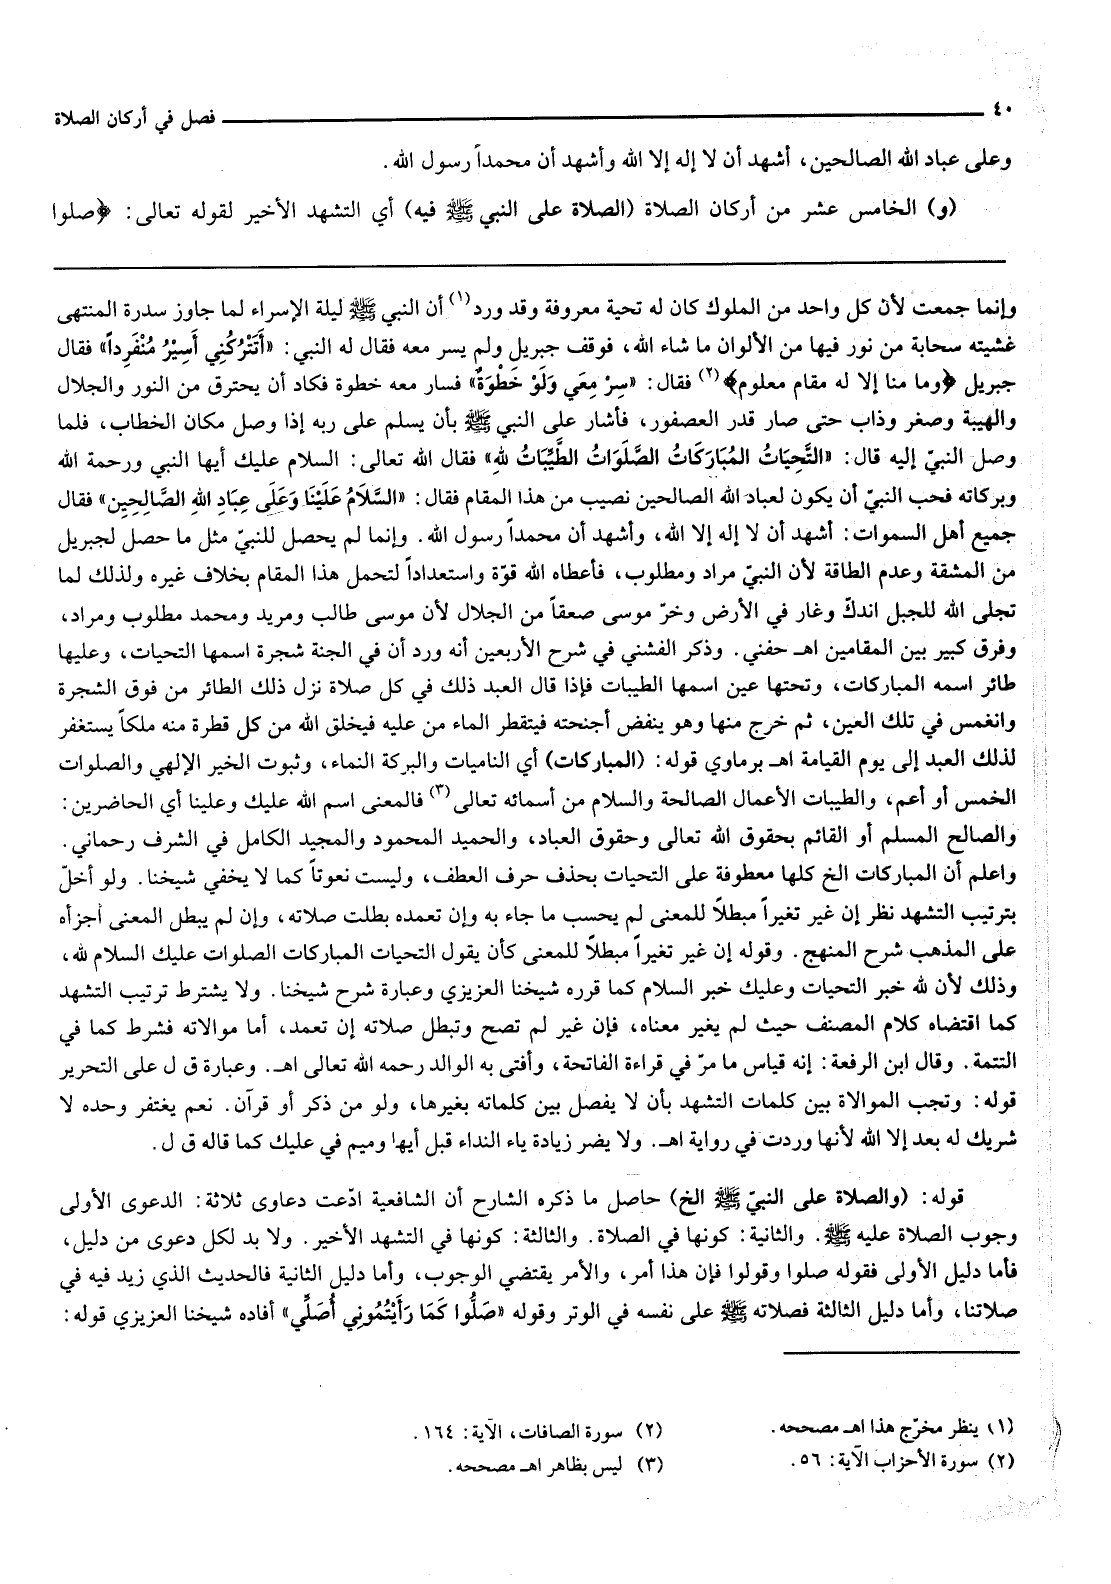 ٤٠ فصل في أركان الصلاة
وعلى عباد الله الصالحين، أشهد أن لا إله إلا الله وأشهد أن محمداً رسول الله.
(و) الخامس عشر من أركان الصلاة (الصلاة على النبي ﷺ فيه) أي التشهد الأخير لقوله تعالى: ﴿صلوا
وإنما جمعت لأن كل واحد من الملوك كان له تحية معروفة وقد ورد(١) أن النبي ﷺ ليلة الإسراء لما جاوز سدرة المنتهى
غشيته سحابة من نور فيها من الألوان ما شاء الله، فوقف جبريل ولم يسر معه فقال له النبي: «أَتَتْرُكُنِي أَسِيْرُ مُنْفَرِداً» فقال
جبريل ﴿وما منا إلا له مقام معلوم﴾(٢) فقال: «سِرْ مِعَي وَلَوْ خَطْوَةً» فسار معه خطوة فكاد أن يحترق من النور والجلال
والهيبة وصغر وذاب حتى صار قدر العصفور، فأشار على النبي ﷺ بأن يسلم على ربه إذا وصل مكان الخطاب، فلما
وصل النبيّ إليه قال: «التَّحِيَاتُ المُبَارَكَاتُ الصَّلَوَاتُ الطَّيِّبَاتُ لله» فقال الله تعالى: السلام عليك أيها النبي ورحمة الله
وبركاته فحب النبيّ أن يكون لعباد الله الصالحين نصيب من هذا المقام فقال: «السَّلاَمُ عَلَيْنَا وَعَلَى عِبَادِ اللهِ الصَّالِحِين» فقال
جميع أهل السموات: أشهد أن لا إله إلا الله، وأشهد أن محمداً رسول الله. وإنما لم يحصل للنبيّ مثل ما حصل لجبريل
من المشقة وعدم الطاقة لأن النبيّ مراد ومطلوب، فأعطاه الله قوّة واستعداداً لتحمل هذا المقام بخلاف غيره ولذلك لما
تجلى الله للجبل اندكّ وغار في الأرض وخرّ موسى صعقاً من الجلال لأن موسى طالب ومريد ومحمد مطلوب ومراد،
وفرق كبير بين المقامين اهـ حفني. وذكر الفشني في شرح الأربعين أنه ورد أن في الجنة شجرة اسمها التحيات، وعليها
طائر اسمه المباركات، وتحتها عين اسمها الطيبات فإذا قال العبد ذلك في كل صلاة نزل ذلك الطائر من فوق الشجرة
وانغمس في تلك العين، ثم خرج منها وهو ينفض أجنحته فيتقطر الماء من عليه فيخلق الله من كل قطرة منه ملكاً يستغفر
لذلك العبد إلى يوم القيامة اهـ برماوي قوله: (المباركات) أي الناميات والبركة النماء، وثبوت الخير الإلهي والصلوات
الخمس أو أعم، والطيبات الأعمال الصالحة والسلام من أسمائه تعالى(٣) فالمعنى اسم الله عليك وعلينا أي الحاضرين:
والصالح المسلم أو القائم بحقوق الله تعالى وحقوق العباد، والحميد المحمود والمجيد الكامل في الشرف رحماني.
واعلم أن المباركات الخ كلها معطوفة على التحيات بحذف حرف العطف، وليست نعوتاً كما لا يخفي شيخنا. ولو أخلّ
بترتيب التشهد نظر إن غير تغيراً مبطلاً للمعنى لم يحسب ما جاء به وإن تعمده بطلت صلاته، وإن لم يبطل المعنى أجزأه
على المذهب شرح المنهج. وقوله إن غير تغيراً مبطلاً للمعنى كأن يقول التحيات المباركات الصلوات عليك السلام لله،
وذلك لأن لله خبر التحيات وعليك خبر السلام كما قرره شيخنا العزيزي وعبارة شرح شيخنا. ولا يشترط ترتيب التشهد
كما اقتضاه كلام المصنف حيث لم يغير معناه، فإن غير لم تصح وتبطل صلاته إن تعمد، أما موالاته فشرط كما في
التتمة. وقال ابن الرفعة: إنه قياس ما مرّ في قراءة الفاتحة، وأفتى به الوالد رحمه الله تعالى اهـ. وعبارة ق ل على التحرير
قوله: وتجب الموالاة بين كلمات التشهد بأن لا يفصل بين كلماته بغيرها، ولو من ذكر أو قرآن. نعم يغتفر وحده لا
شريك له بعد إلا الله لأنها وردت في رواية اهـ. ولا يضر زيادة ياء النداء قبل أيها وميم في عليك كما قاله ق ل.
قوله: (والصلاة على النبيّ ﷺ الخ) حاصل ما ذكره الشارح أن الشافعية ادّعت دعاوى ثلاثة: الدعوى الأولى
وجوب الصلاة عليه ﷺ. والثانية: كونها في الصلاة. والثالثة: كونها في التشهد الأخير. ولا بد لكل دعوى من دليل،
فأما دليل الأولى فقوله صلوا وقولوا فإن هذا أمر، والأمر يقتضي الوجوب، وأما دليل الثانية فالحديث الذي زيد فيه في
صلاتنا، وأما دليل الثالثة فصلاته ﷺ على نفسه في الوتر وقوله «صَلُّوا كَمَا رَأَيْتُمُوني أُصَلِّي» أفاده شيخنا العزيزي قوله:
(١) ينظر مخرّج هذا اهـ مصححه. (٢) سورة الصافات، الآية: ١٦٤.
(٢) سورة الأحزاب الآية: ٥٦. (٣) ليس بظاهر اهـ مصححه.